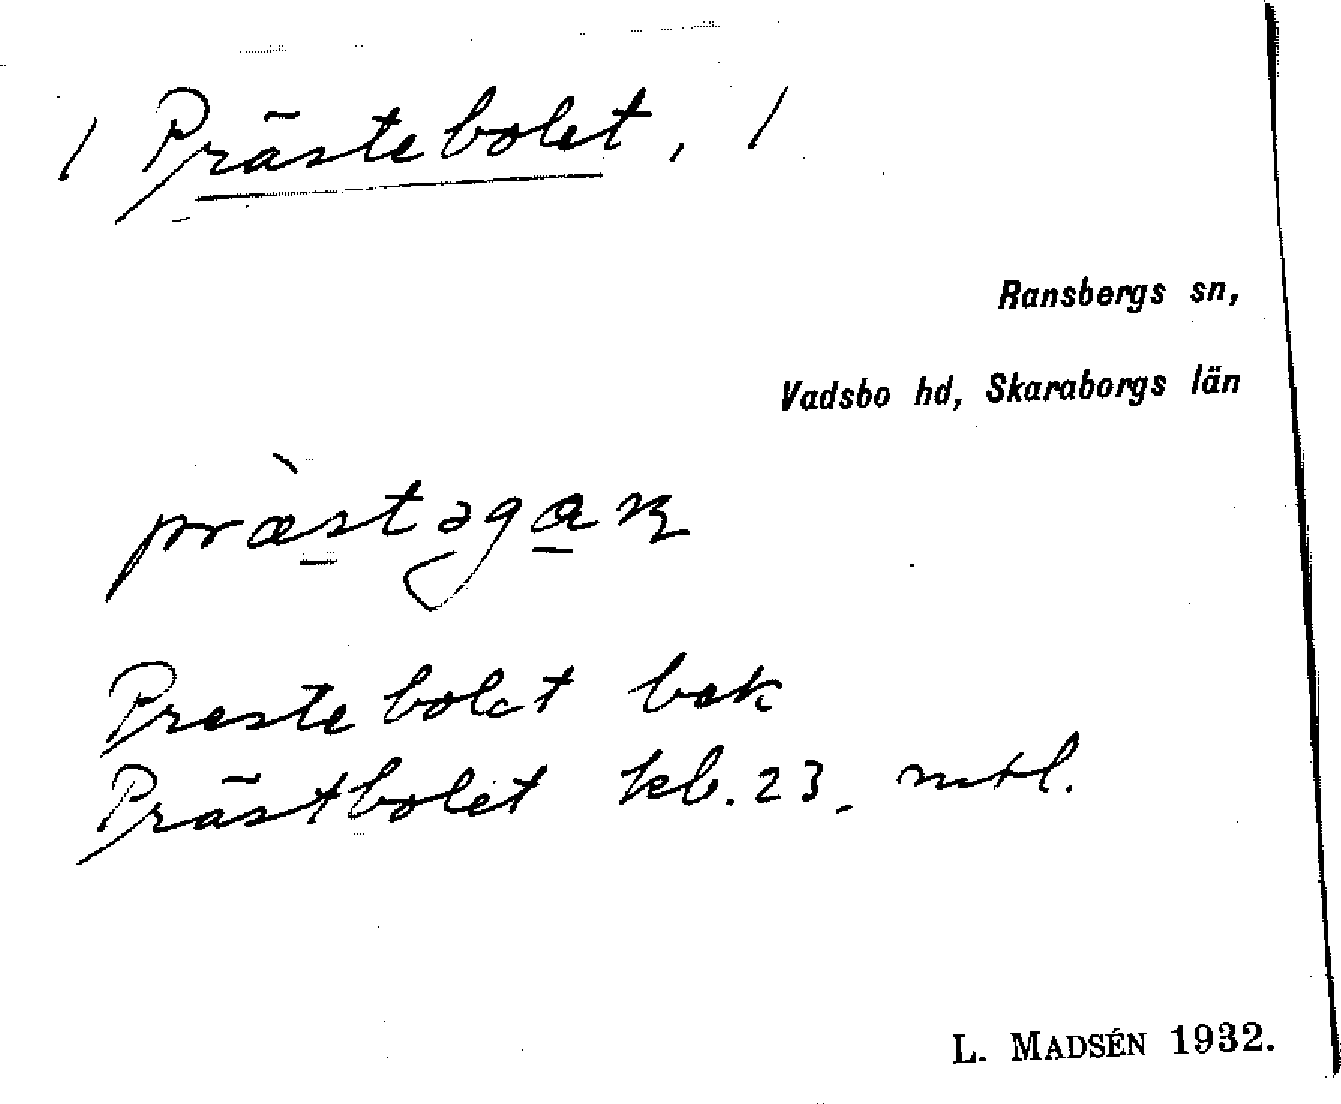 / Prästebolet, /
Ransbergs sn,
Vadsbo hd, Skaraborgs län
præ̀stəgaɳ
Prestebolet bek
Prästbolet kb. 23. mtl.
L. MADSÉN 1932.